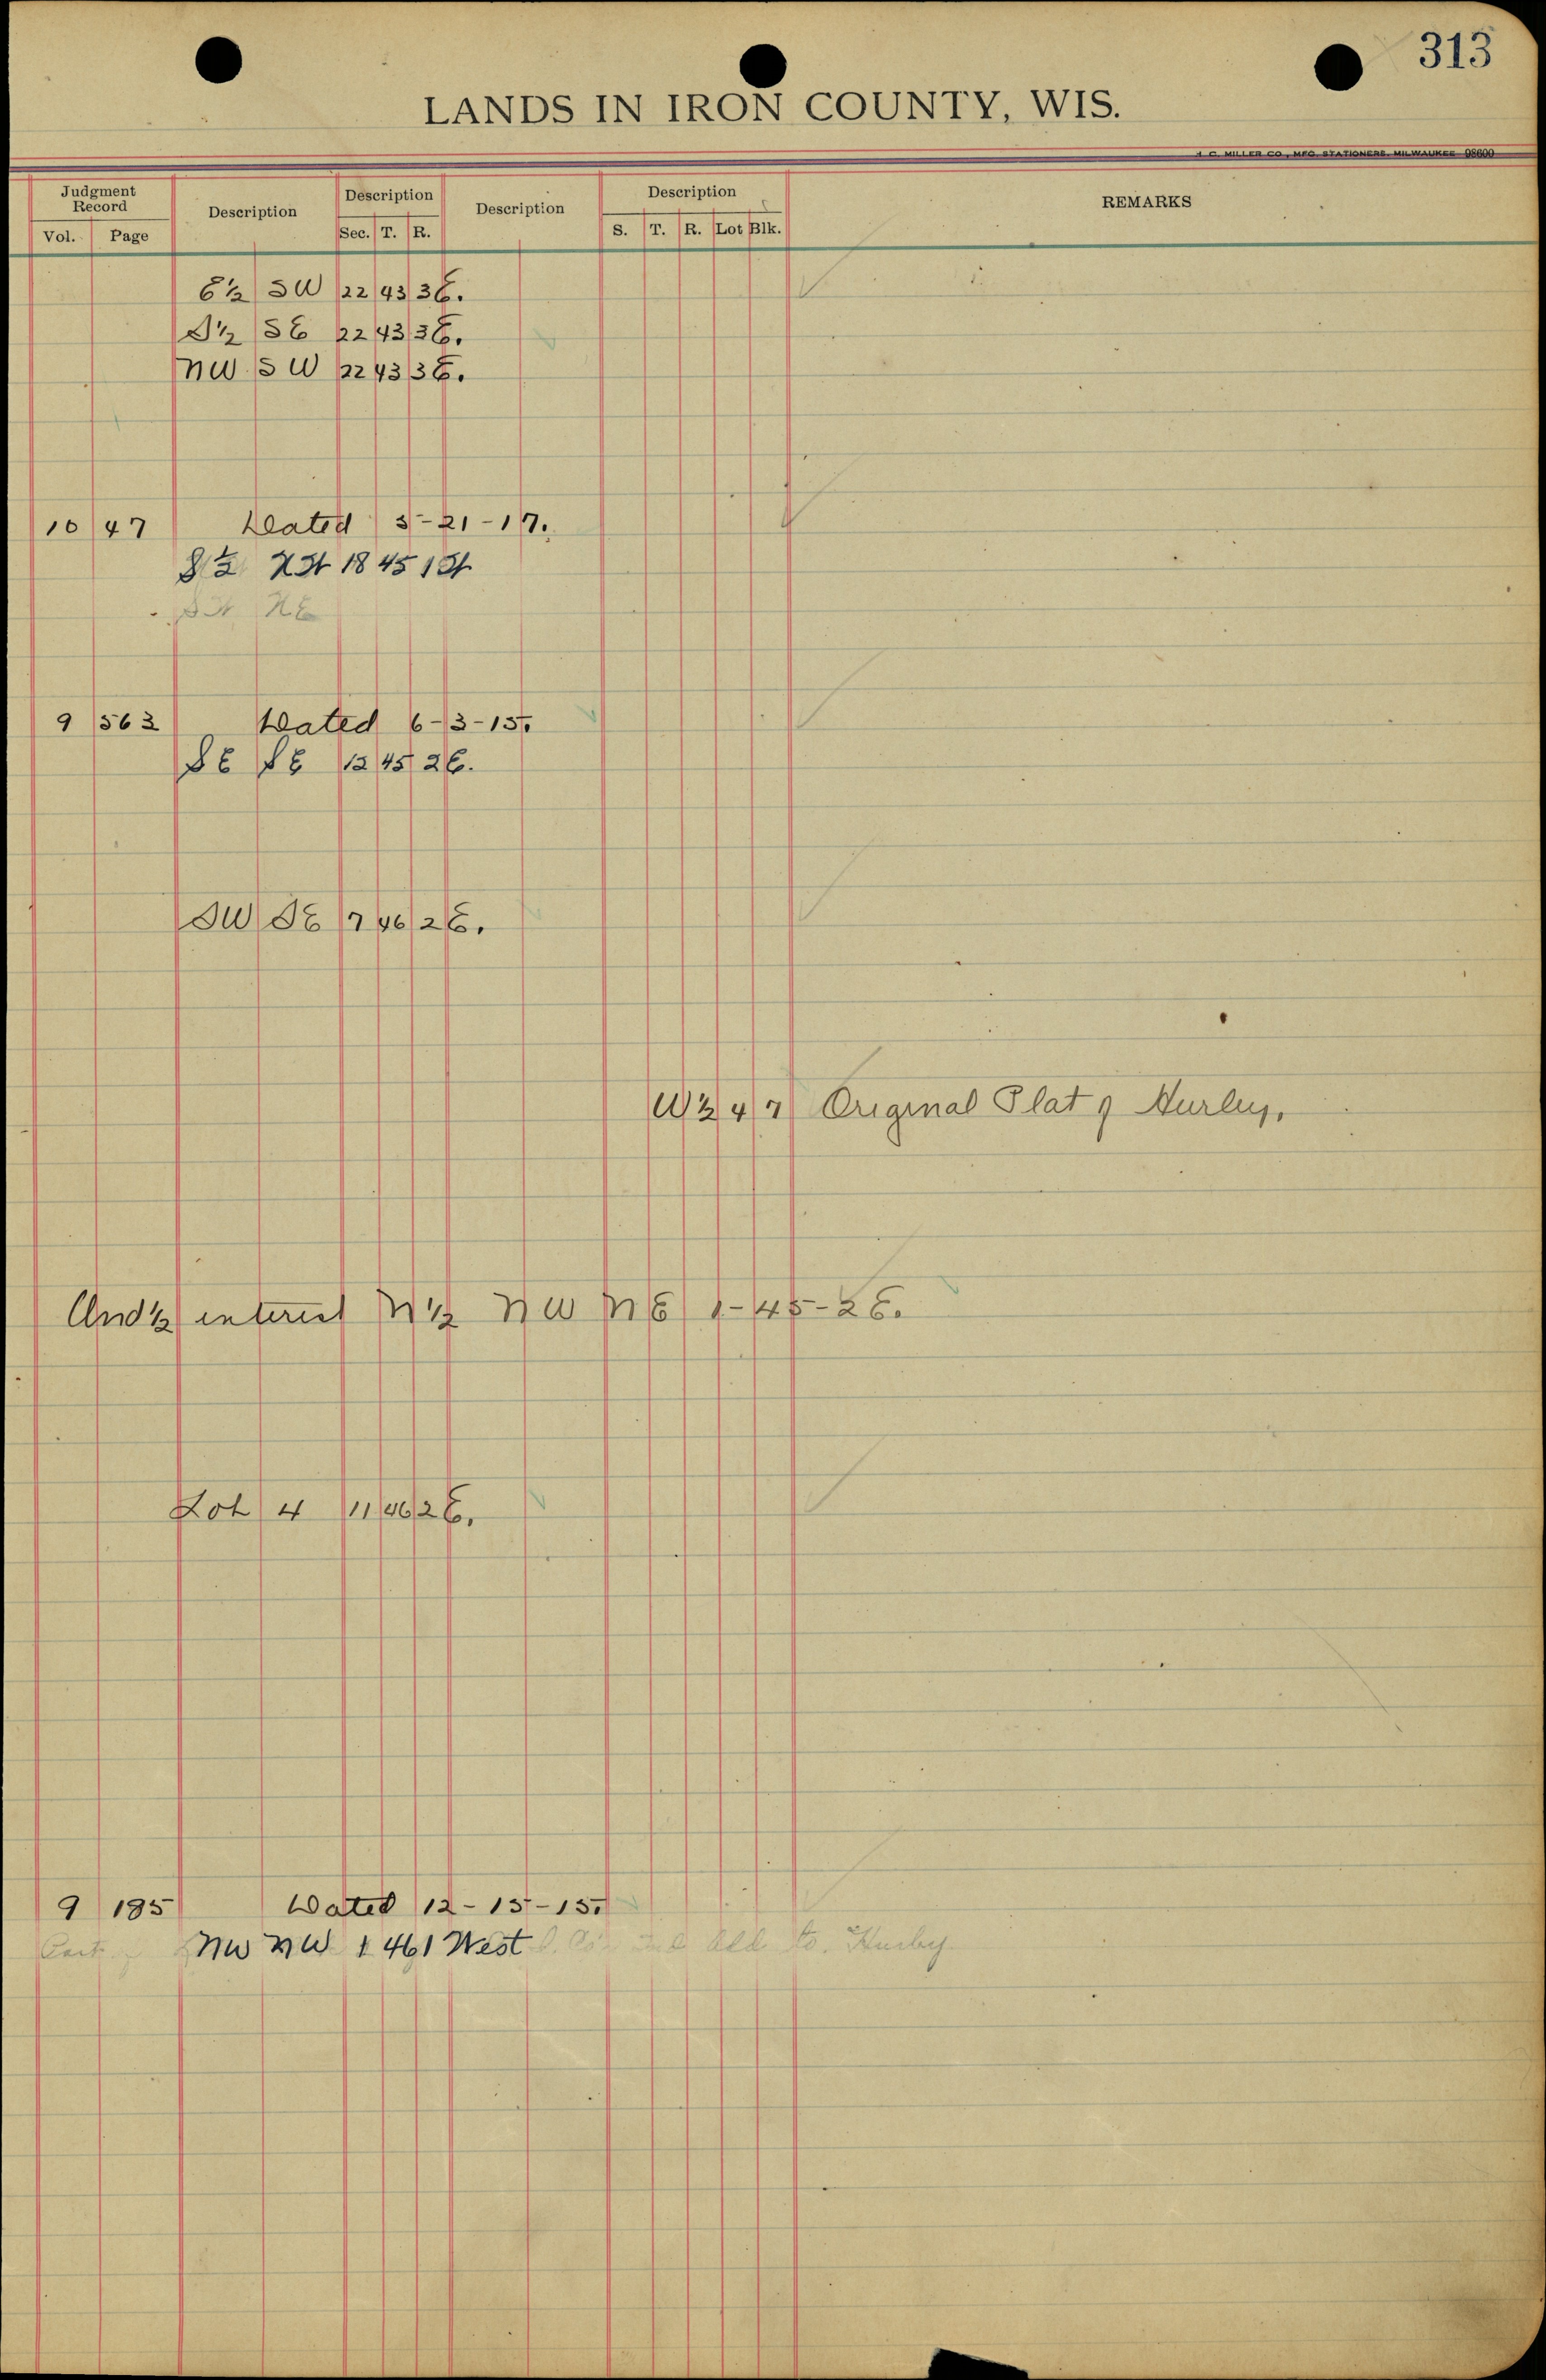 313
LANDS IN IRON COUNTY, WIS.
H. C. MILLER CO., MFG. STATIONERS, MILWAUKEE 98600
Judgment Record Description Description Description Description REMARKS
Vol. Page Sec. T. R. S. T. R. Lot Blk.
E½ SW 22 43 3E.
S½ SE 22 43 3E.
NW SW 22 43 3E.
10 47 Dated 5-21-17.
S½ NW 18 45 1W
SW NE
9 563 Dated 6-3-15.
SE SE 12 45 2E.
SW SE 7 46 2E.
W½ 4 7 Original Plat of Hurley.
Und ½ interest N½ NW NE 1-45-2E.
Lot 4 11 46 2E.
9 185 Dated 12-15-15.
Part NW NW 1 46 1 West Add to. Hurley